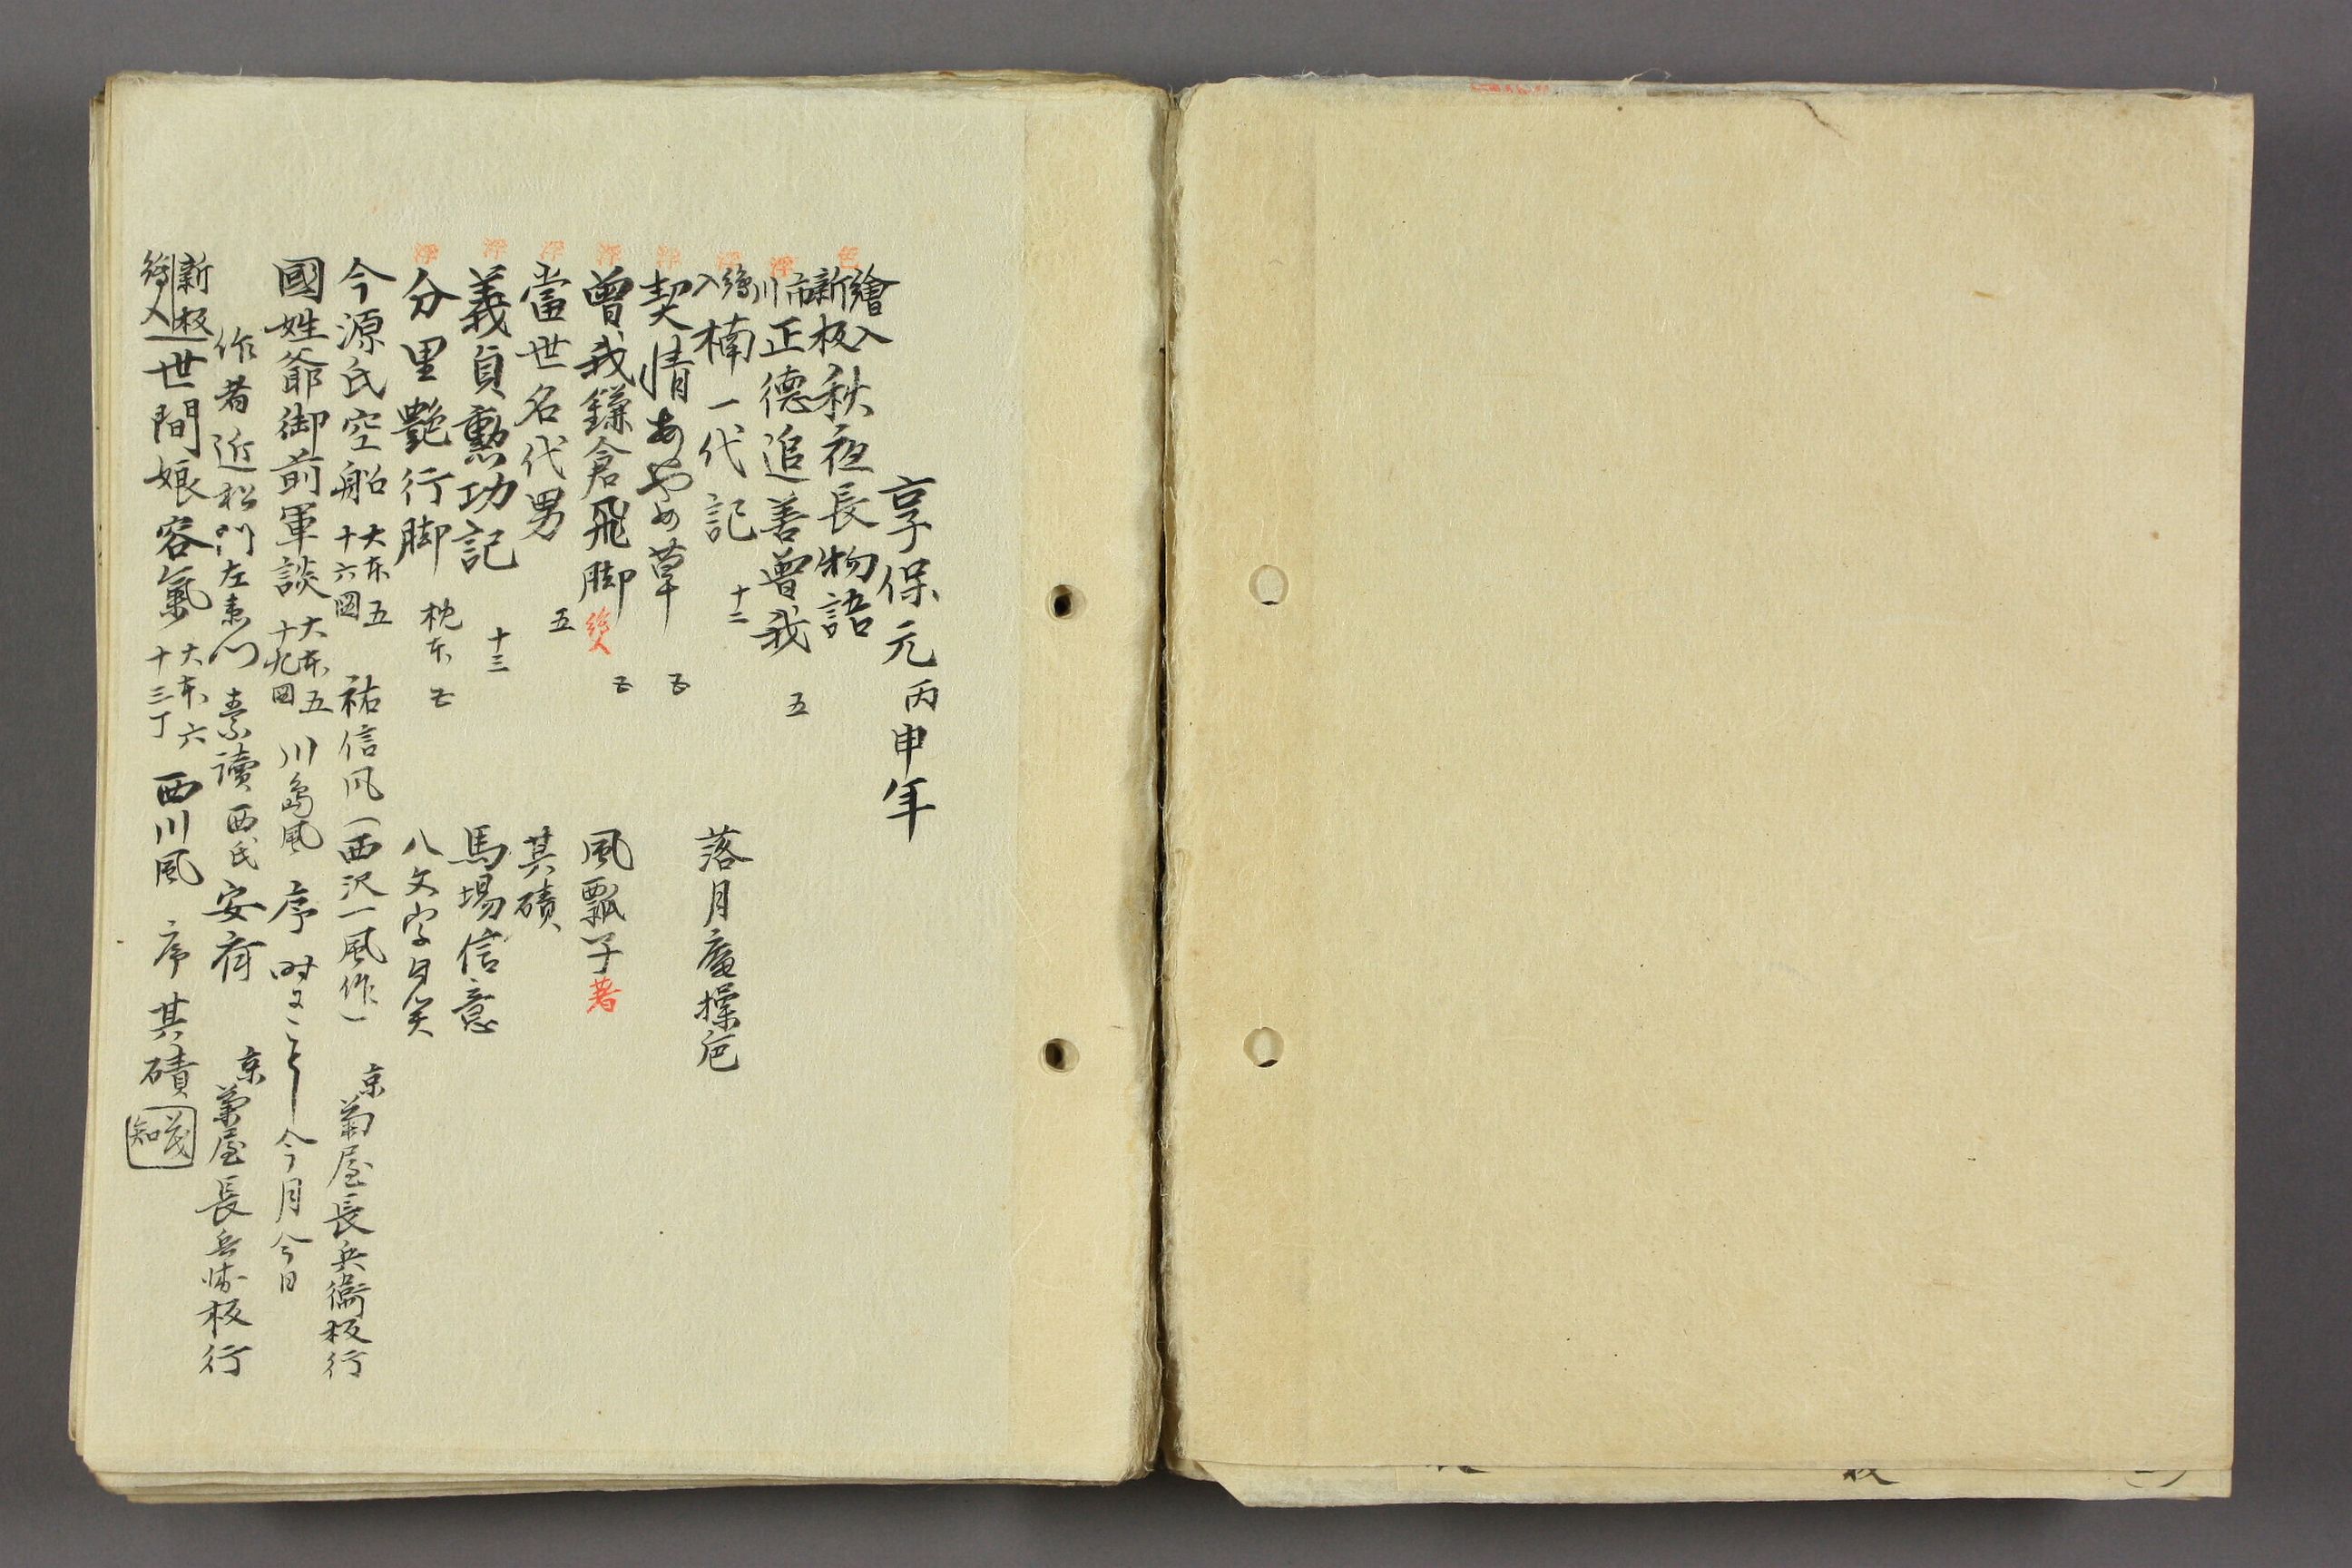 享保元丙申年
色 繪入新板 秋夜長物語
浮 市川 正德追善曾我 五
浮 繪入 楠一代記 十二 落月庵操巵
浮 契情あやめ草 五
浮 曾我鎌倉飛脚 繪入 五 風瓢子著
浮 當世名代男 五 其磧
浮 義貞勲功記 十三 馬場信意
浮 分里艶行脚 枕本 五 八文字自笑
今源氏空船 大本五 十六図 祐信风(西沢一風作) 京菊屋長兵衞板行
國姓爺御前軍談 大本五 十九図 川島風 序 時 今月今日
作者近松門左衛門 素讀西氏安荷 京菊屋長兵衛板行
新板 繪入 世間娘容氣 大本六 十三丁 西川風 序 其磧 知